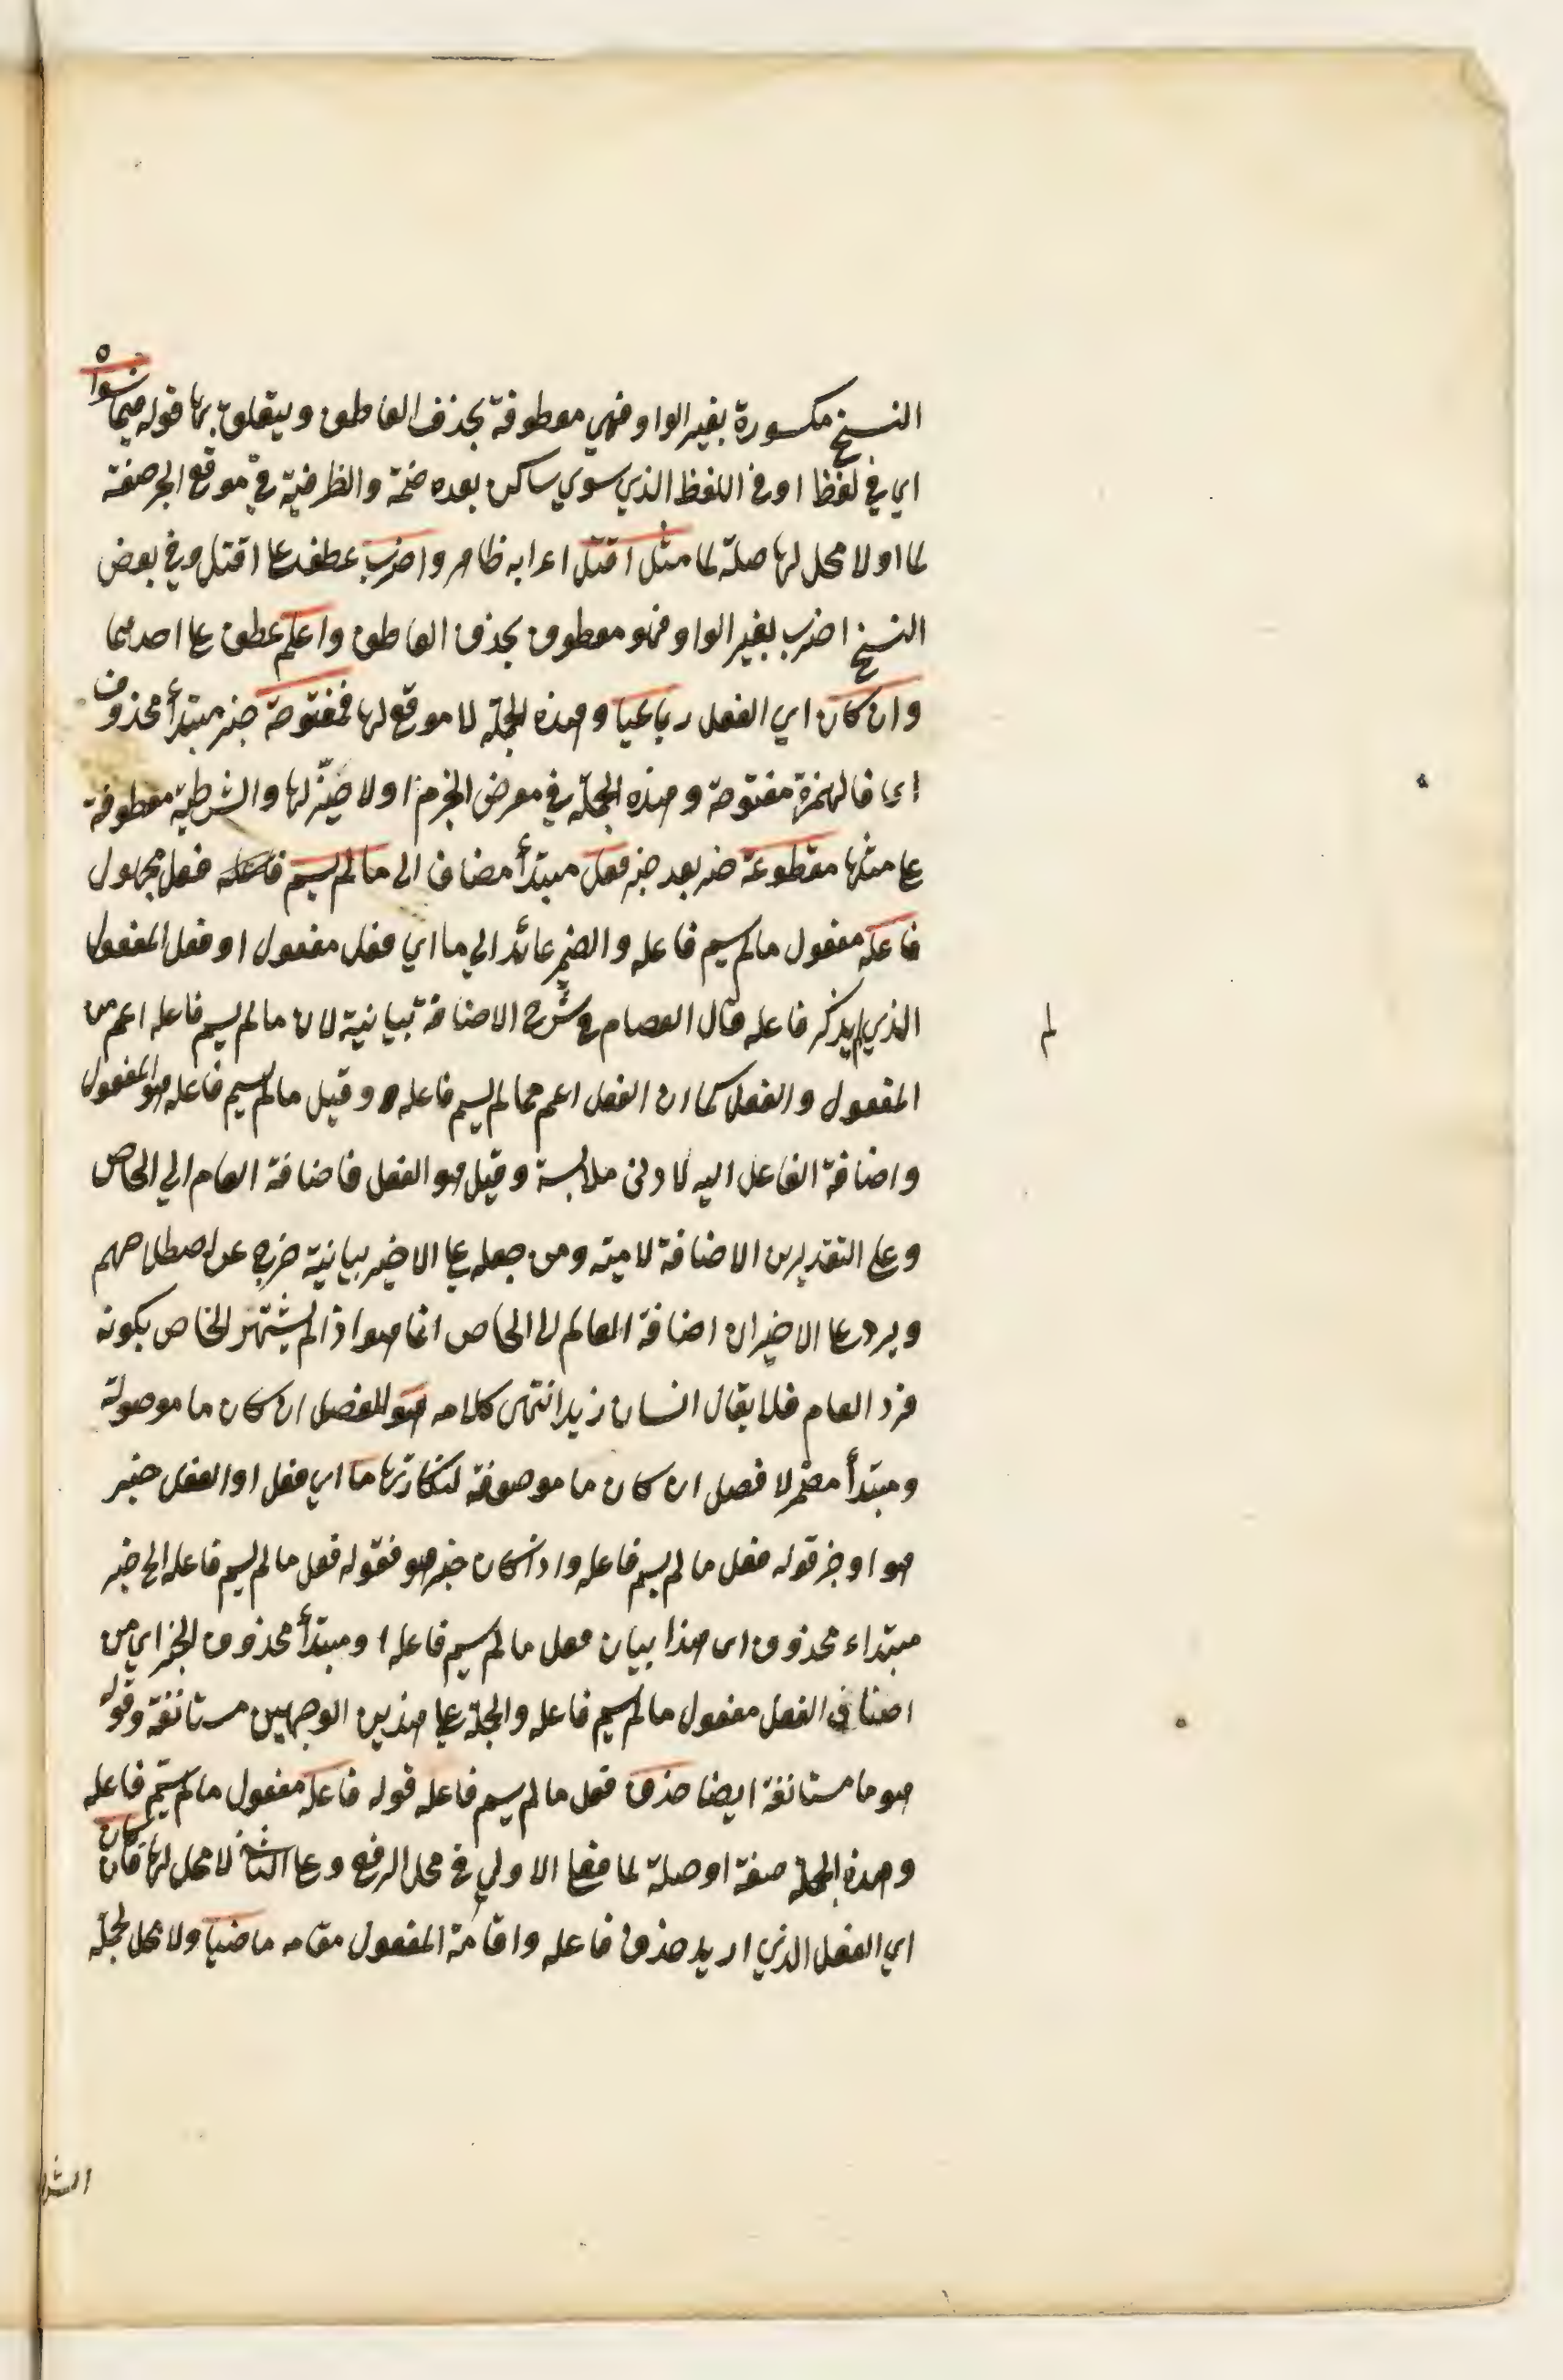 النسخ مكسورة بغير الواو فهي معطوفة بحذف العاطف ويتعلق بها قوله فيما سواه
اي في لفظ او في اللفظ الذي سوي ساكن بعده ضمة والظرفية في موقع الجر صفة
لما او لا محل لها صلة لما مثل اقتل اعرابه ظاهر واضرب عطف على اقتل وفي بعض
النسخ اضرب بغير الواو فهو معطوف بحذف العاطف واعلم عطف على احدهما
وان كان اي الفعل رباعيا وهذه الجملة لا موقع لها فمفتوحة خبر مبتدأ محذوف
اي فالهمزة مفتوحة وهذه الجملة في معرض الجزم او لا حيز لها والشرطية معطوفة
على مثلها مقطوعة خبر بعد خبر فعل مبتدأ مضاف الى ما لم يسم فاعله فعل مجهول
فاعله مفعول ما لم يسم فاعله والضمير عائد الي ما اي فعل مفعول او فعل المفعول
الذي لم يذكر فاعله قال العصام في شرح الاضافة بيانية لان ما لم يسم فاعله اعم من
المفعول والفعل كما ان الفعل اعم مما لم يسم فاعله وقيل ما لم يسم فاعله هو المفعول
واضافة الفاعل اليه لادنى ملابسة وقيل هو الفعل فاضافة العام الي الخاص
وعلى التقديرين الاضافة لامية ومن جعله على الاخير بيانية خرج عن اصطلاحهم
ويرد على الاخير ان اضافة العالم الى الخاص انما هو اذا لم يشتهر الخاص بكونه
فرد العام فلا يقال انسان زيد انتهى كلامه هو للفصل ان كان ما موصولة
ومبتدأ مضمر لا فصل ان كان ما موصوفة لنكارتها ما اي فعل او الفعل خبر
هو او خبر قوله فعل ما لم يسم فاعله واذا كان خبر هو فقوله فعل ما لم يسم فاعله الخ خبر
مبتداء محذوف اى هذا بيان فعل ما لم يسم فاعله او مبتدأ محذوف الخبر اي من
اصناف الفعل مفعول ما لم يسم فاعله والجملة على هذين الوجهين مستانفة وقوله
هو ما مستانفة ايضا حذف فعل ما لم يسم فاعله قوله فاعله مفعول ما لم يسم فاعله
وهذه الجملة صفة او صلة لما فعلى الاولي في محل الرفع وعلى الثاني لا محل لها فان كان
اي الفعل الذي اريد حذف فاعله واقامة المفعول مقامه ماضيا ولا محل لجملة
لم
الشر